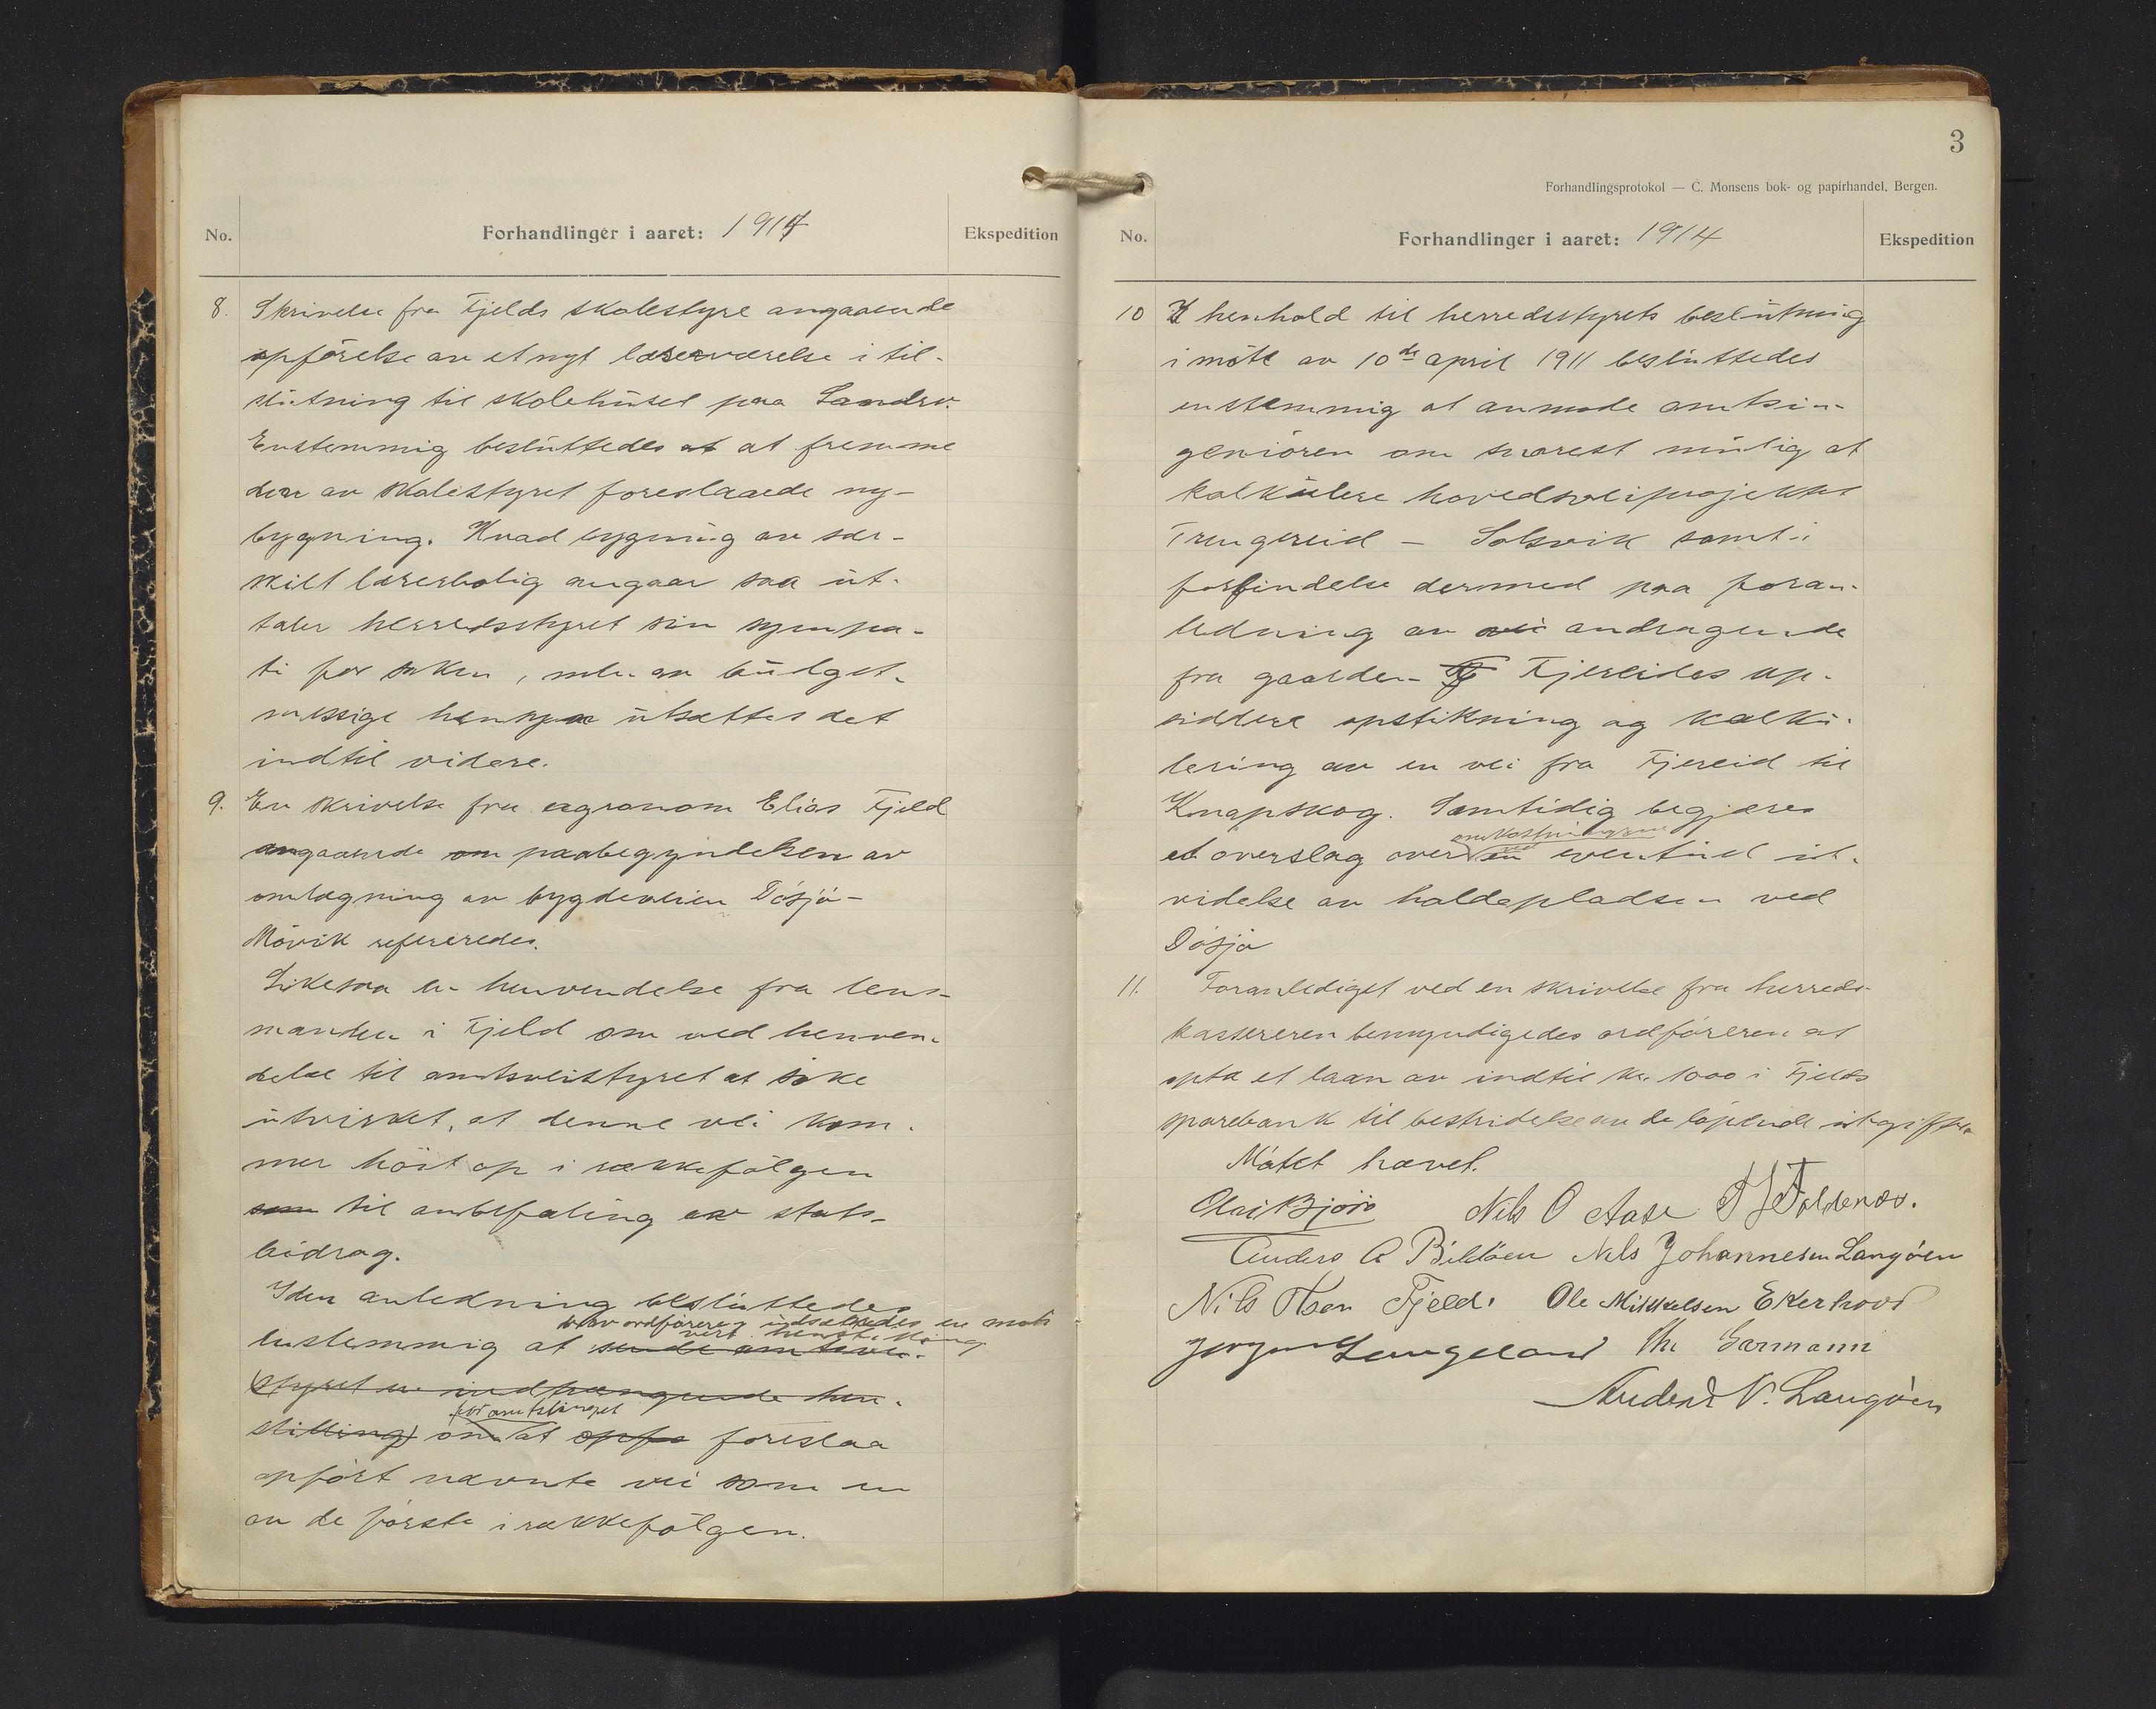 No.
Forhandlinger i aaret: 1914
Ekspedition
8. Skrivelse fra Fjelds skolestyre angaaende
opførelse av et nyt læreværelse i til-
slutning til skolehuset paa Landro.
Enstemmig besluttedes at at fremme
den av skolestyret foreslaaede ny-
bygning. Hvad bygning av sær-
skilt lærerbolig angaar saa ut-
taler herredsstyret sin sympa-
ti for saken, men av budget-
mæssige hensyn utsættes det
indtil videre.
9. En skrivelse fra agronom Elias Fjeld
angaaende om paabegyndelsen av
omlægning av bygdeveien Døsjø-
Møvik refereredes.
Likesaa en henvendelse fra lens-
manden i Fjeld om ved henven-
delse til amtsveistyret at søke
utvirket, at denne vei kom-
mer høit op i rækkefølgen
som til anbefaling av stats-
bidrag.
I den anledning besluttedes
av ordføreren indsendes en mot-
vert henstilling
enstemmig at sende amtsvei-
styret en indtrængende hen-
for amtstinget
stilling) om at opfø foreslaa
opført nævnte vei som en
av de første i rækkefølgen.
3
Forhandlingsprotokol — C. Monsens bok- og papirhandel, Bergen.
No.
Forhandlinger i aaret: 1914
Ekspedition
10 I henhold til herredsstyrets beslutning
i møte av 10de april 1911 besluttedes
enstemmig at anmode amtsin-
geniøren om snarest mulig at
kalkulere hovedveiprojektet
Trengereid — Solsvik samt i
forbindelse dermed paa foran-
ledning av vei andragende
fra gaarden Fjereides op-
siddere opstikning og kalku-
lering av en vei fra Fjereid til
Knapskog. Samtidig begjæres
omkostningerne
ved
et overslag over en eventuel ut-
videlse av holdepladsen ved
Døsjø
11. Foranlediget ved en skrivelse fra herreds-
kassereren bemyndigedes ordføreren at
opta et laan av indtil kr. 1000 i Fjelds
sparebank til bestridelse av de løpende utgifter
Møtet hævet.
Olai Bjørø Nils O Aase Foldenes.
Anders A Bildøen Nils Johannesen Langøen
Nils Olsen Fjeld. Ole Mikkelsen Ekerhovd
Jørgen Langeland Chr Garmann
Anders N. Langøen